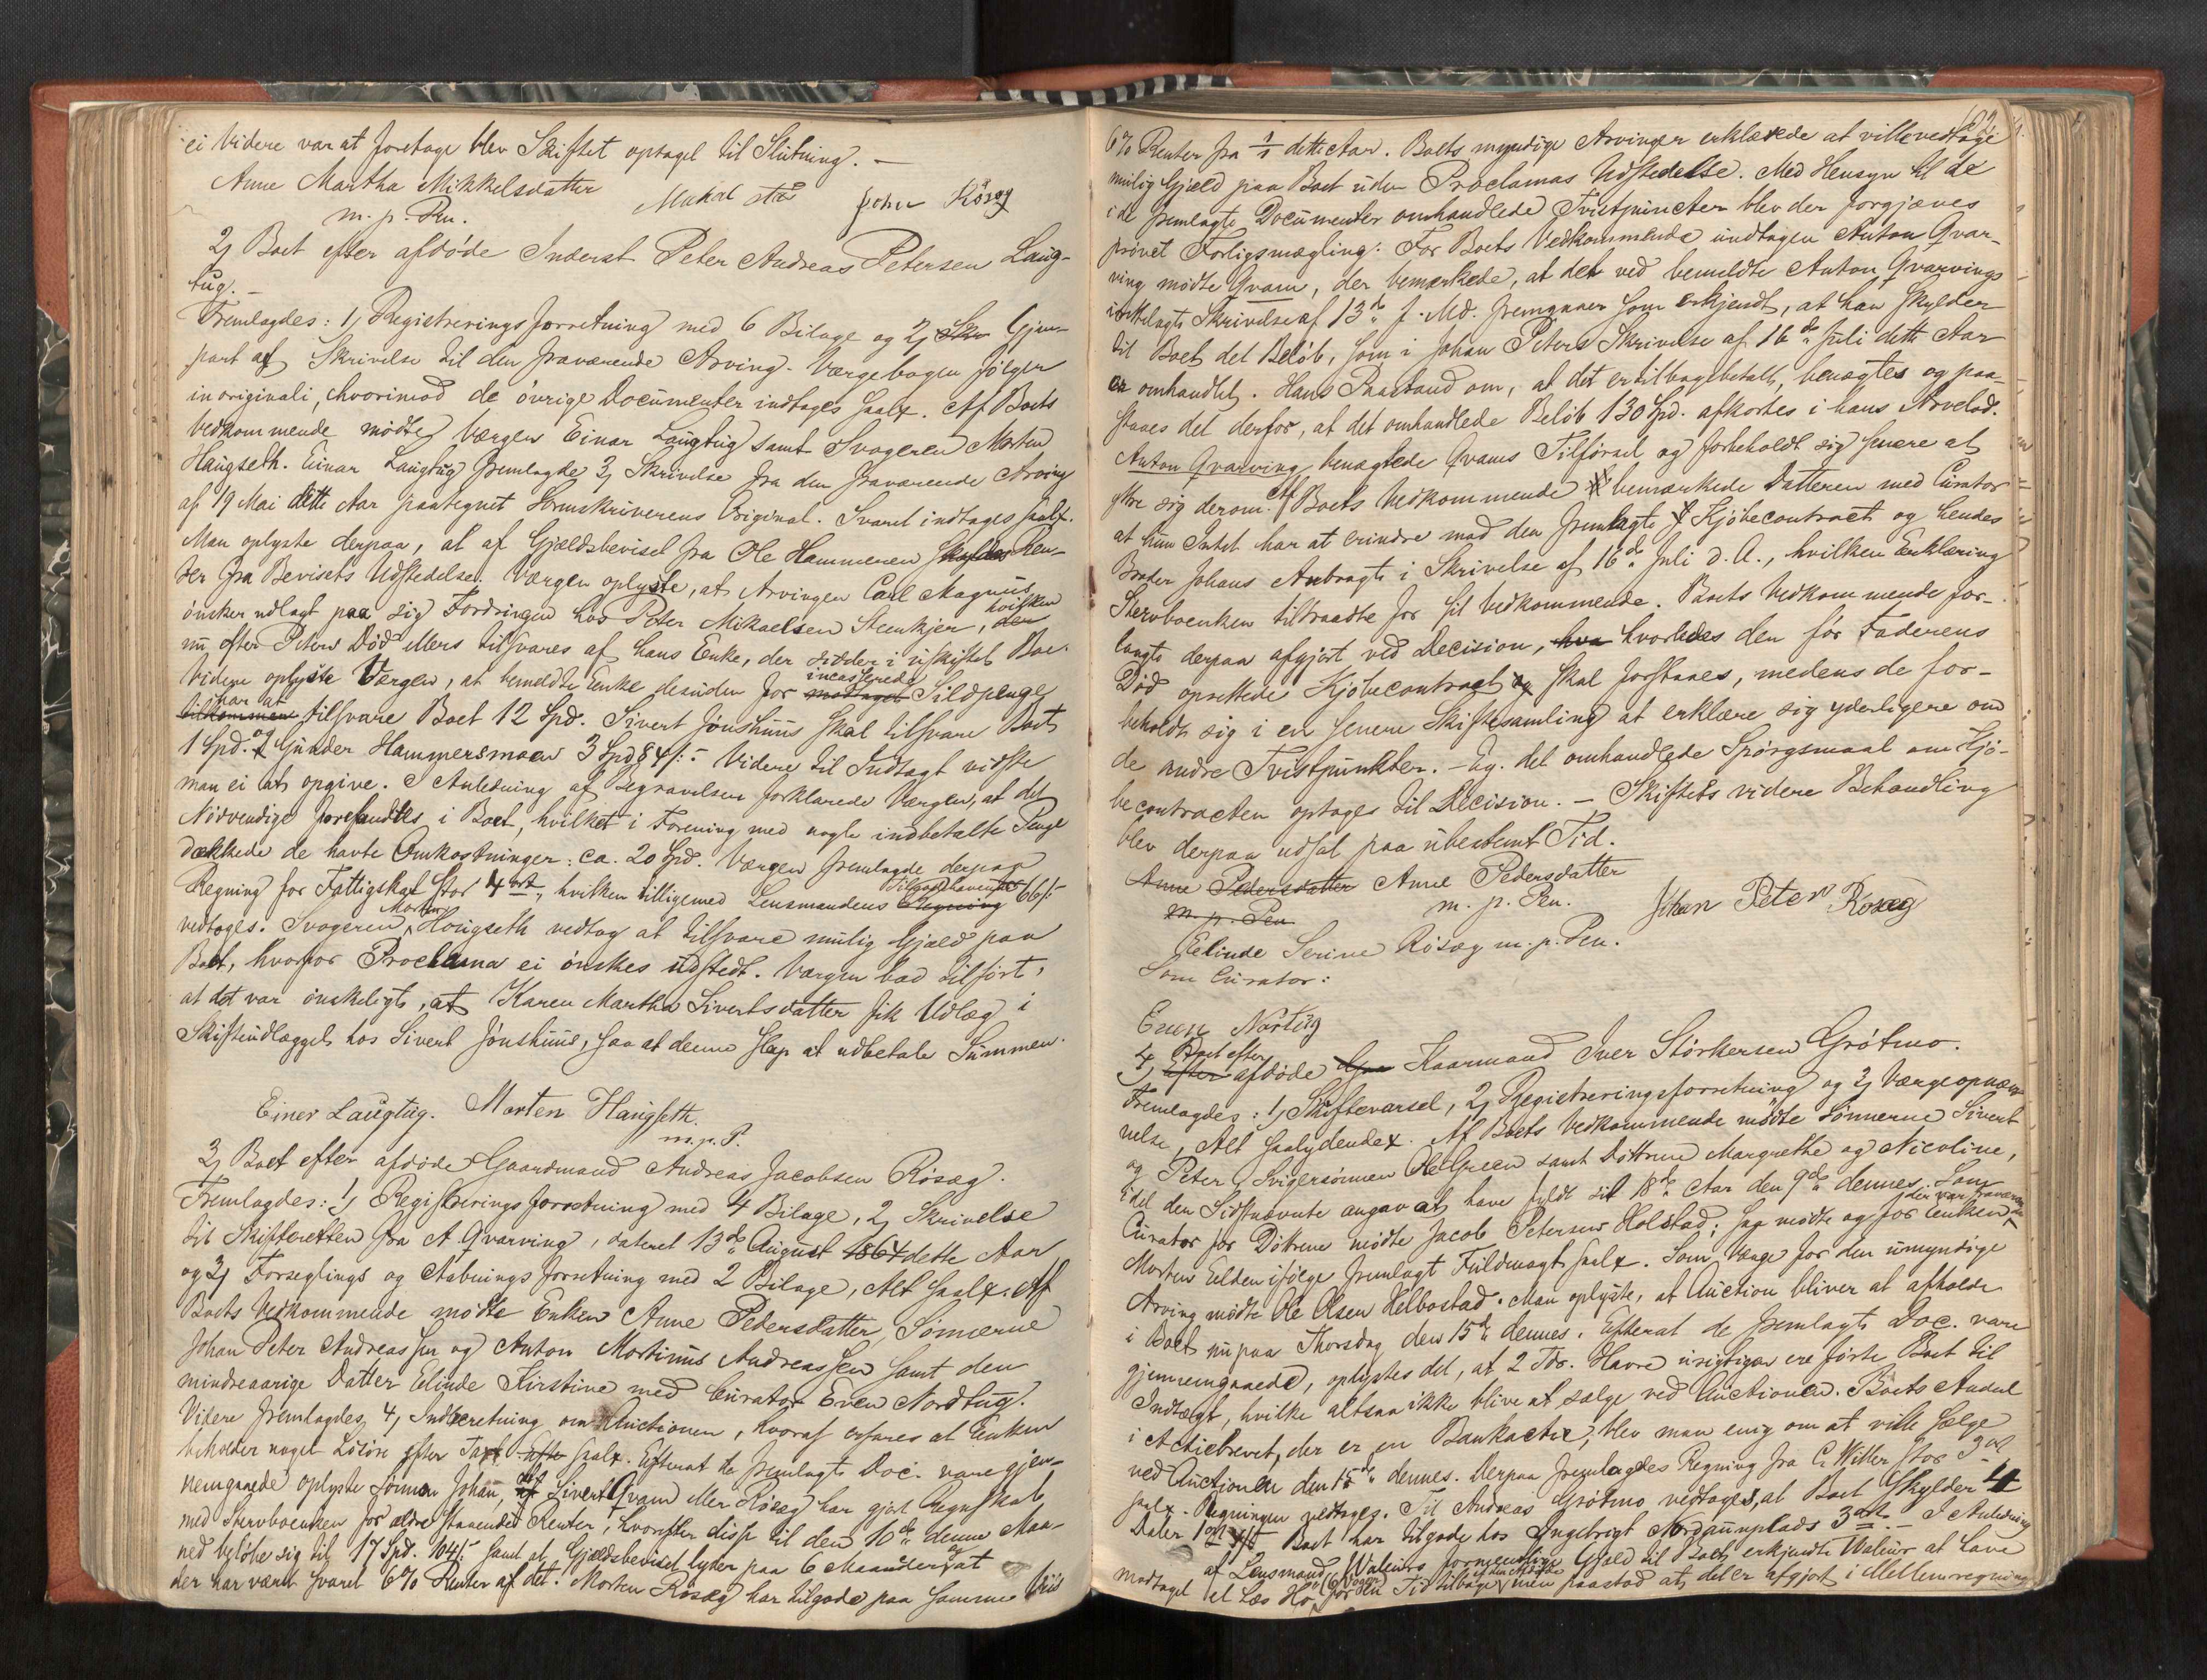 ei videre var at foretage blev Skiftet optaget til Slutning. —
Anne Martha Mikkelsdatter
m. p. Pen.
2, Boet efter afdøde Inderst Peter Andreas Petersen Laug-
tug. —
Fremlagdes: 1, Registreringsforretning med 6 Bilage og 2, Skr Gjen-
part af Skrivelse til den fraværende Arving. Værgebogen følger
in originali, hvorimod de øvrige Documenter indtages saalx. Af Boets
Vedkommende mødte Værgen Einar Laugtug samt Svogeren Morten
Haugseth. Einar Laugtug fremlagde 3, Skrivelse fra den fraværende Arving
af 19 Mai dette Aar paategnet Sorenskriverens Original. Svaret indtages saalx.
Man oplyste derpaa, at af Gjældsbeviset fra Ole Hammeren skyldes Ren-
ter fra Bevisets Udstedelse. Værgen oplyste, at Arvingen Carl Magnus
ønsker udlagt paa sig Fordringen hos Peter Mikaelsen Steenkjer, den hvilken
nu efter Peters Død tilsvares af hans Enke, der sidder i uskiftet Boe.
Videre oplyste Værgen, at bemeldte Enke desuden for modtaget incasserede Sildpenge
har at tilsvare Boet 12 Spd. Sivert Jønshuus skal tilsvare Boet
1 Spd. og Gunder Hammersmoen 3 Spd 84 s. Videre til Indtægt vidste
man ei at opgive. I Anledning af Begravelsen forklarede Værgen, at det
Nødvendige forefandtes i Boet, hvilket i Forening med nogle indbetalte Penge
dækkede de havte Omkostninger: ca. 20 Spd. Værgen fremlagde derpaa
Regning for Fattigskat stor 4 ort, hvilken tilligemed Lensmandens Regning Tilgodehavende 66 s
vedtoges. Svogeren Morten Hougseth vedtog at tilsvare mulig Gjæld paa
Boet, hvorfor Proclama ei ønskes udstedt. Værgen bad tilført,
at det var ønskeligt, at Karen Martha Sivertsdatter fik Udlæg i
Skifteudlægget hos Sivert Jønshuus, saa at denne slap at udbetale Summen.
Einer Laugtug. Morten Haugseth.
m. p. P.
3, Boet efter afdøde Gaardmand Andreas Jacobsen Røsæg.
Fremlagdes: 1, Registreringsforretning med 4 Bilage, 2, Skrivelse
til Skifteretten fra A. Qvarving, dateret 13de August 1864 dette Aar
og 3, Forseglings og Aabningsforretning med 2 Bilage, Alt saalx. Af
Boets Vedkommende mødte Enken Anne Pedersdatter, Sønnerne
Johan Peter Andreassen og Anton Martinus Andreassen samt den
mindreaarige Datter Elinde Kirstine med Curator Even Nordtug.
Videre fremlagdes 4, Indberetning om Auctionen, hvoraf erfares at Enken
beholder noget Løsøre efter Taxt Efte saalx. Efterat de fremlagte Doc. vare gjen-
nemgaaede oplyste Sønnen Johan, at Sivert Qvam eller Røsæg har gjort Regnskab
med Stervboenken for ældre staaende Renter, hvorefter disse til den 10de denne Maa-
ned beløbe sig til 17 Spd. 104 s. samt at Gjældsbeviset lyder paa 6 Maaneder og at
der har været svaret 6% Renter af det. Morten Røsæg har tilgode paa samme Viis
6% Renter fra 1/1 dette Aar. Boets myndige Arvinger erklærede at ville vedtage
mulig Gjæld paa Boet uden Proclamas Udstedelse. Med Hensyn til de
i de fremlagte Documenter omhandlede Tvistpuncter blev der forgjæves
prøvet Forligsmægling: For Boets Vedkommende undtagen Anton Qvar-
ving mødte Qvam, der bemærkede, at det ved bemeldte Anton Qvarvings
Skrivelse af 13de f. Md. fremgaaer som erkjendt, at han skylder
til Boet det Beløb, som i Johan Peters Skrivelse af 16de Juli dette Aar
er omhandlet. Hans Paastand om, at det er tilbagebetalt, benægtes og paa-
staaes det derfor, at det omhandlede Beløb 130 Spd. afkortes i hans Arvelod.
Anton Qvarving benægtede Qvams Tilførsel og forbeholdt sig senere at
ytre sig derom. Af Boets Vedkommende bemærkede Datteren med Curator
at hun Intet har at erindre mod den fremlagte Kjøbecontract og hendes
Broder Johans Anbragte i Skrivelse af 16de Juli d. A., hvilken Erklæring
Stervboenken tiltraadte for sit Vedkommende. Boets Vedkommende for-
langte derpaa afgjort ved Decision, hva hvorledes den før Faderens
Død oprettede Kjøbecontract og skal forstaaes, medens de for-
beholdt sig i en senere Skiftesamling at erklære sig yderligere om
de andre Tvistpunkter. — Eg. det omhandlede Spørgsmaal om Kjø-
becontracten optages til Decision. — Skiftets videre Behandling
blev derpaa udsat paa ubestemt Tid.
Anne Pedersdatter Anne Pedersdatter
m. p. Pen. m. p. Pen. Johan Peter Rosæg
Elinde Serine Røsæg m. p. Pen.
Som Curator:
Even Nortug
4, efter Boet efter afdøde Gaa Kaarmand Iver Størkersen Grøtmo.
Fremlagdes: 1, Skiftevarsel, 2, Registreringsforretning og 3, Værgeopnæv-
nelse, Alt saalydende x. Af Boets Vedkommende mødte Sønnerne Sivert
og Peter, Svigersønnen Ole Green samt Døttrene Margrethe og Nicoline,
idet den Sidstnævnte angav at have fyldt sit 18de Aar den 9de dennes. Som
Curator for Døttrene mødte Jacob Petersen Holstad; og mødte og for Enken der var fraværende
Morten Eelden ifølge fremlagt Fuldmagt saalx. Som Værge for den umyndige
Arving mødte Ole Olsen Helbostad. Man oplyste, at Auction bliver at afholde
i Boet nu paa Thorsdag den 15de dennes. Efterat de fremlagte Doc. vare
gjennemgaaede, oplystes det, at 2 Tdr. Havre urigtigen ere førte Boet til
Indtægt, hvilke altsaa ikke blive at sælge ved Auctionen. Boets Andeel
i Actiebrevet, der er en Bankactie, blev man enig om at ville sælge
ved Auctionen den 15de dennes. Derpaa fremlagdes Regning fra C. Witter stor 3 ort
saalx. Regningen vedtoges. Til Andreas Grøtmo vedtoges, at Boet skylder 4
Daler 1 ort Boet har tilgode hos Ingebrigt Nordaunplads 3 ort. — I Anledning
af Lensmand Waleurs formentlige Gjæld til Boet erkjendte Waleur at have
modtaget et Læs Hø for en Tid tilbage, men paastod at det er afgjort i Mellemregning